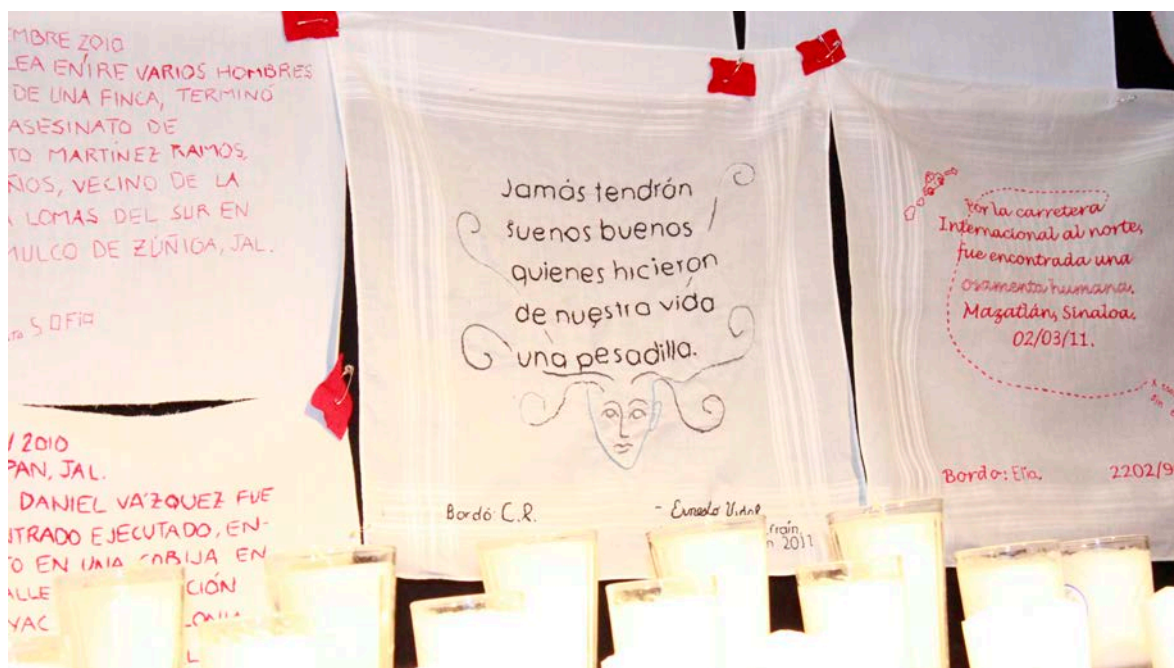 EMBRE 2010
LEA ENTRE VARIOS HOMBRES
DE UNA FINCA, TERMINÓ
ASESINATO DE
TO MARTÍNEZ RAMOS,
ÑOS, VECINO DE LA
LOMAS DEL SUR EN
MULCO DE ZÚÑIGA, JAL.
SOFÍA
2010
PAN, JAL.
DANIEL VÁZQUEZ FUE
NTRADO EJECUTADO, EN-
TO EN UNA COBIJA EN
ALLE CIÓN
YAC
Jamás tendrán
suenos buenos
quienes hicieron
de nuestra vida
una pesadilla.
Bordó: C.R. - Ernesto Vidal
fraín,
n 2011
Por la carretera
Internacional al norte,
fue encontrada una
osamenta humana.
Mazatlán, Sinaloa.
02/03/11.
Bordo: Elia. 2202/9